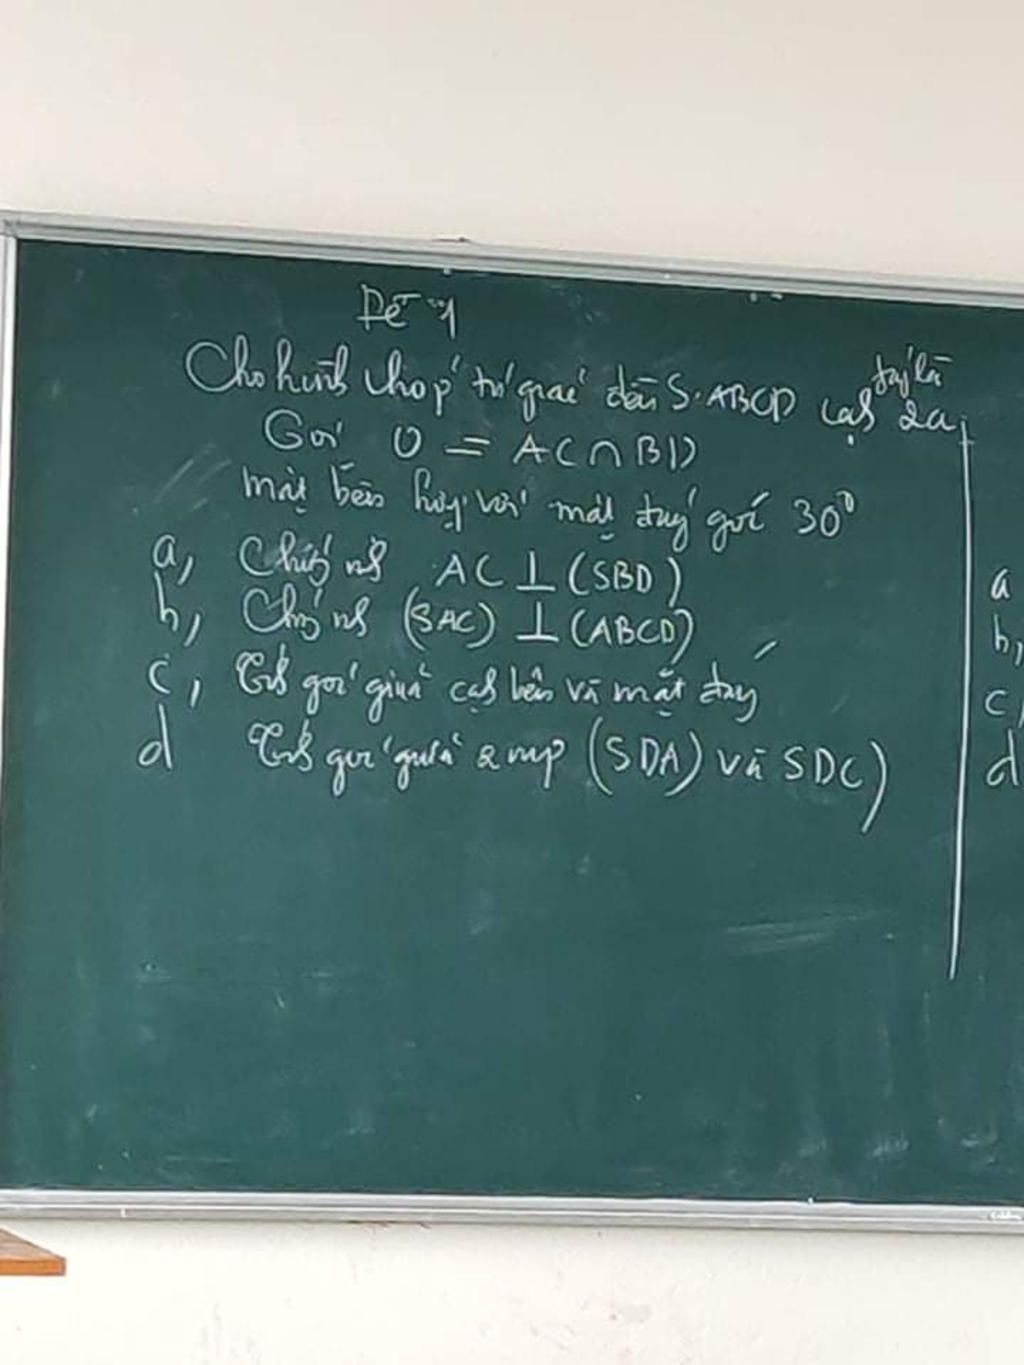 Đề 1
Cho hình chóp tứ giác đều S.ABCD cạnh đáy là 2a,
Gọi O = AC ∩ BD
mặt bên hợp với mặt đáy góc 30⁰
a, Chứng m AC ⊥ (SBD)
b, Chứng m (SAC) ⊥ (ABCD)
c, Tính góc giữa cạnh bên và mặt đáy
d Tính góc giữa 2 mp (SDA) và SDC)
a
b,
c,
d